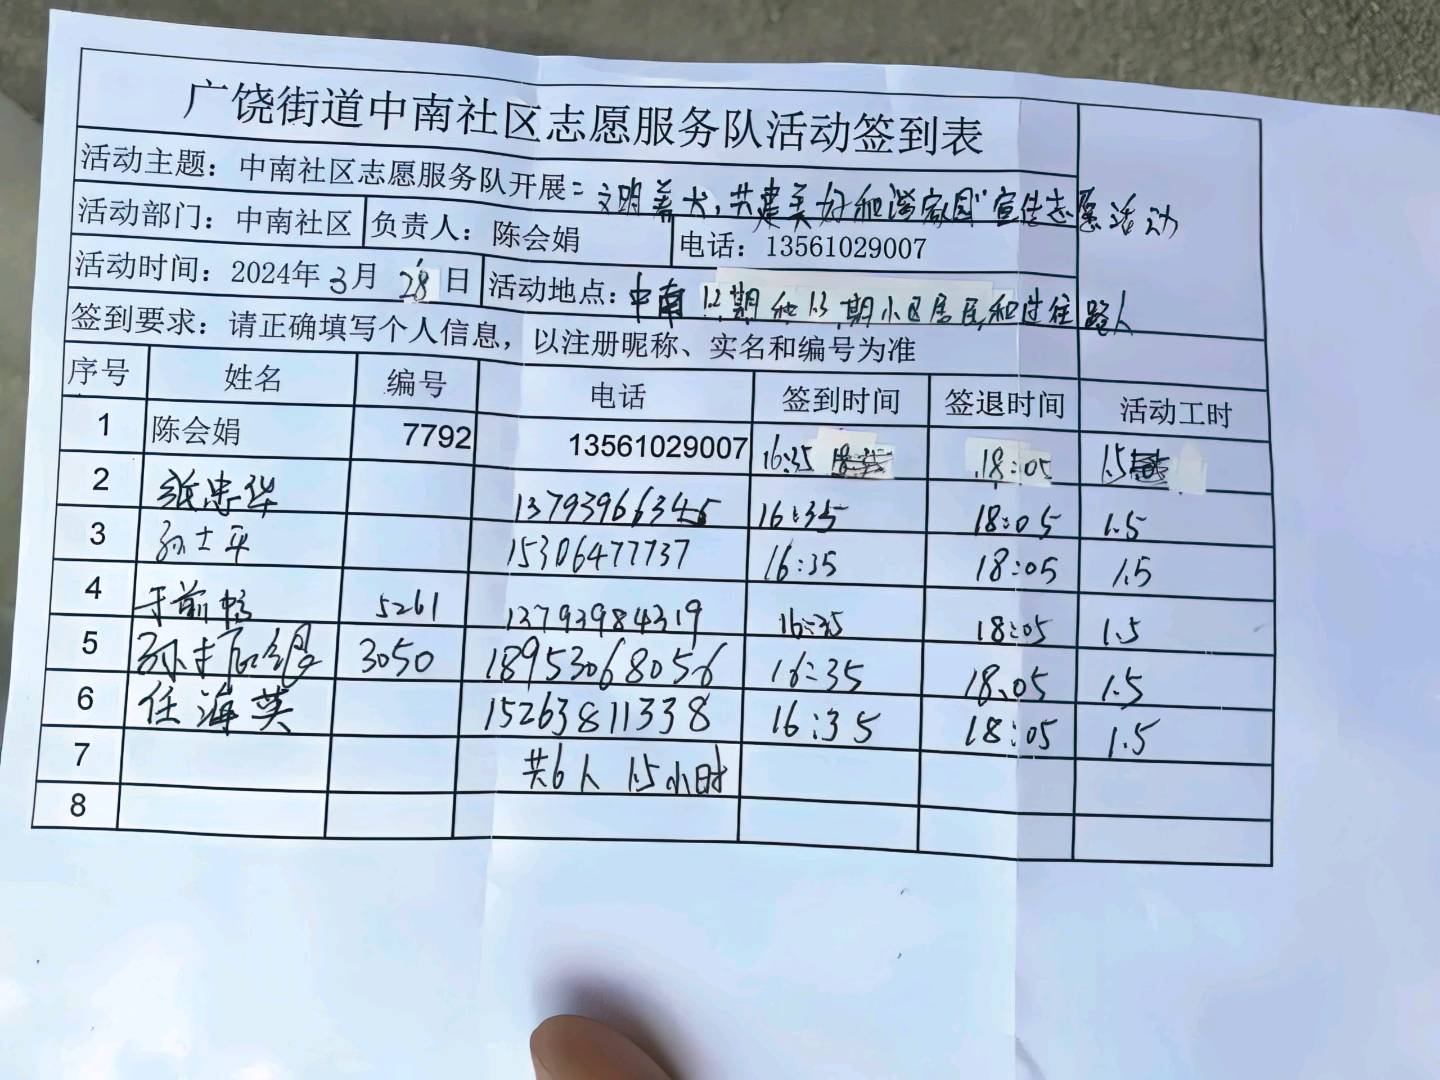 广饶街道中南社区志愿服务队活动签到表
活动主题：中南社区志愿服务队开展：文明养犬，共建美好和谐家园"宣传志愿活动
活动部门：中南社区 负责人：陈会娟 电话：13561029007
活动时间：2024年3月28日 活动地点：中南1.2期和1.3期小区居民和过往路人
签到要求：请正确填写个人信息，以注册昵称、实名和编号为准
序号 姓名 编号 电话 签到时间 签退时间 活动工时
1 陈会娟 7792 13561029007 16:35 18:05 1.5
2 张忠华 13793966345 16:35 18:05 1.5
3 孙士平 15306477737 16:35 18:05 1.5
4 于前 5261 13793984319 16:35 18:05 1.5
5 孙 3050 18953068056 16:35 18:05 1.5
6 任海英 15263811338 16:35 18:05 1.5
7 共6人 1.5小时
8